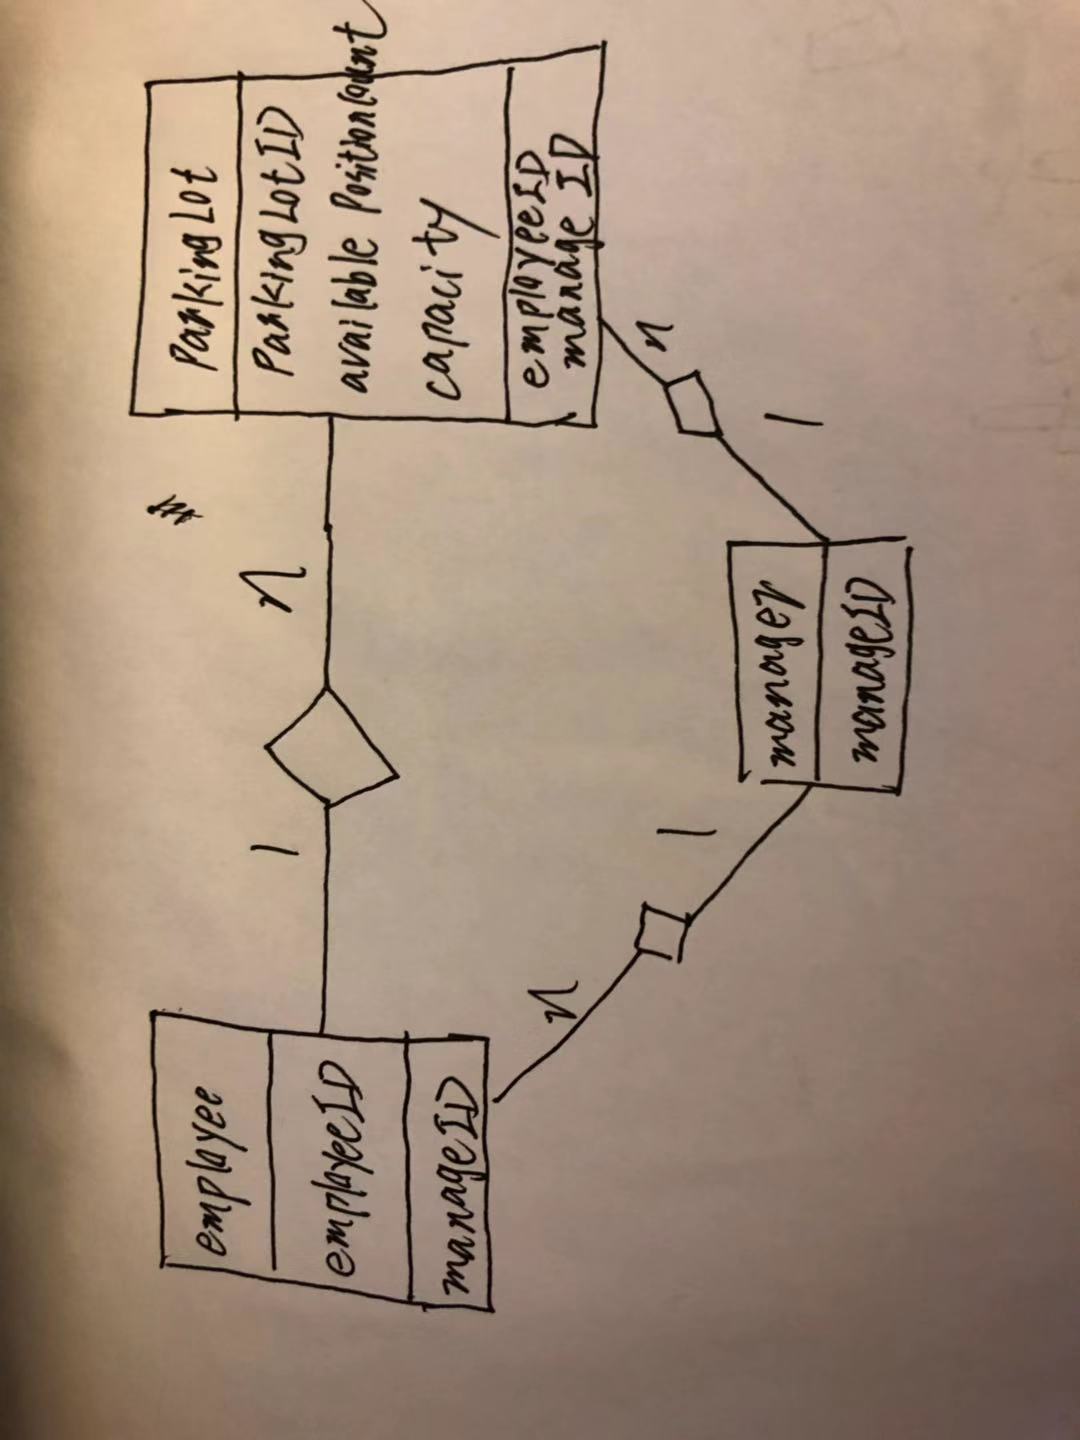 employee
employeeID
manageID
1
n
ParkingLot
ParkingLotID
available Positioncount
capacity
employeeID
manage ID
n
1
manager
manageID
n
1